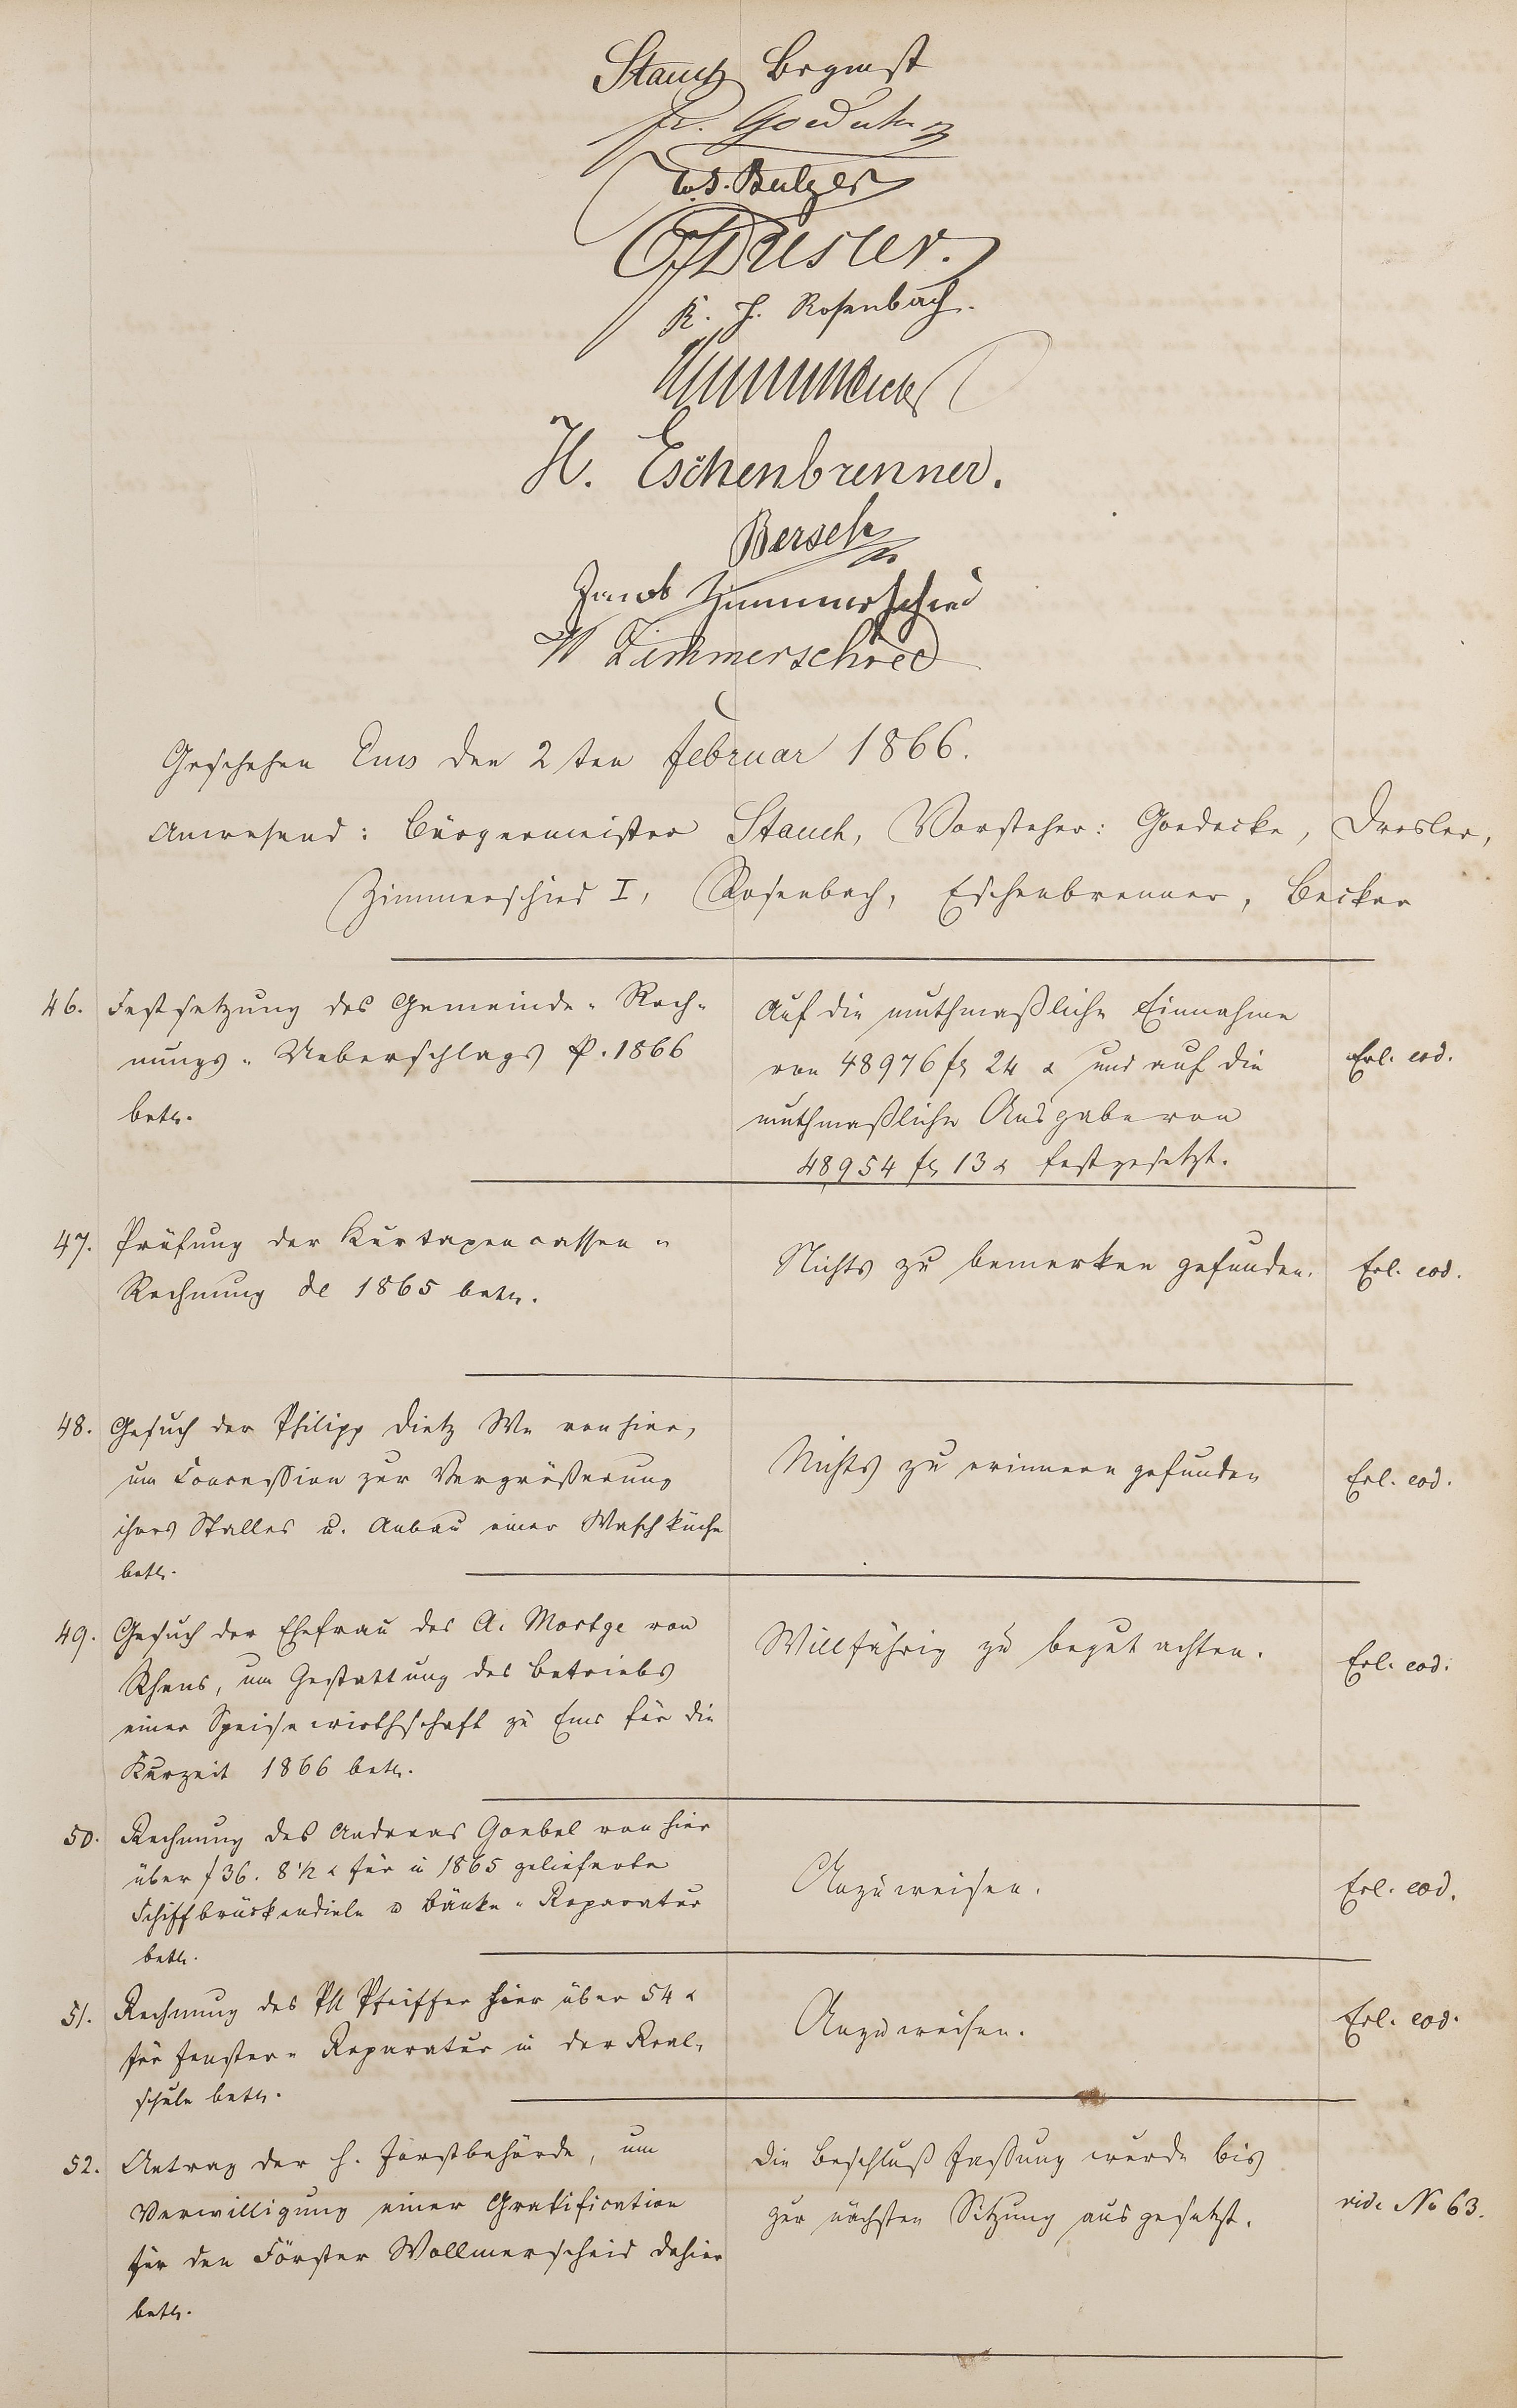 Stauch Brgmst
Fr. Goedecke
W. Balzer
Dresler.
K. H. Rosenbach.
H. Eschenbrenner.
Bersch
Jacob Zimmerschied
W Zimmerschied
Geschehen Ems den 2ten Februar 1866.
Anwesend: Bürgermeister Stauch, Vorsteher: Goedecke, Dresler,
Zimmerschied I, Rosenbach, Eschenbrenner, Becker
46. Festsetzung des Gemeinde-Rech-
nungs-Ueberschlags p. 1866
betr.
Auf die muthmaßliche Einnahme
von 48976 fl 24 x und auf die
muthmaßliche Ausgabe von
48954 fl 13 x festgesetzt.
Erl. eod.
47. Prüfung der Kurtaxencassen-
Rechnung de 1865 betr.
Nichts zu bemerken gefunden.
Erl. eod.
48. Gesuch der Philipp Dietz We von hier,
um Concession zur Vergrößerung
ihres Stalles u. Anbau einer Waschküche
betr.
Nichts zu erinnern gefunden
Erl. eod.
49. Gesuch der Ehefrau des A. Mortge von
Rhens, um Gestattung des Betriebs
einer Speisewirthschaft zu Ems für die
Kurzeit 1866 betr.
Willfährig zu begutachten.
Erl. eod.
50. Rechnung des Andreas Goebel von hier
über f 36. 8 1/2 x für in 1865 gelieferte
Schiffbrückendiele u Bänke-Reparatur
betr.
Anzuweisen.
Erl. eod.
51. Rechnung des Ph Pfeiffer hier über 54 x
für Fenster-Reparatur in der Real-
schule betr.
Anzuweisen.
Erl. eod.
52. Antrag der H. Forstbehörde, um
Verwilligung einer Gratification
für den Förster Wollmerscheid dahier
betr.
Die Beschlußfassung wurde bis
zur nächsten Sitzung ausgesetzt.
vide No 63.